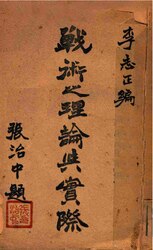 李志正編
戰術之理論與實際
張治中題